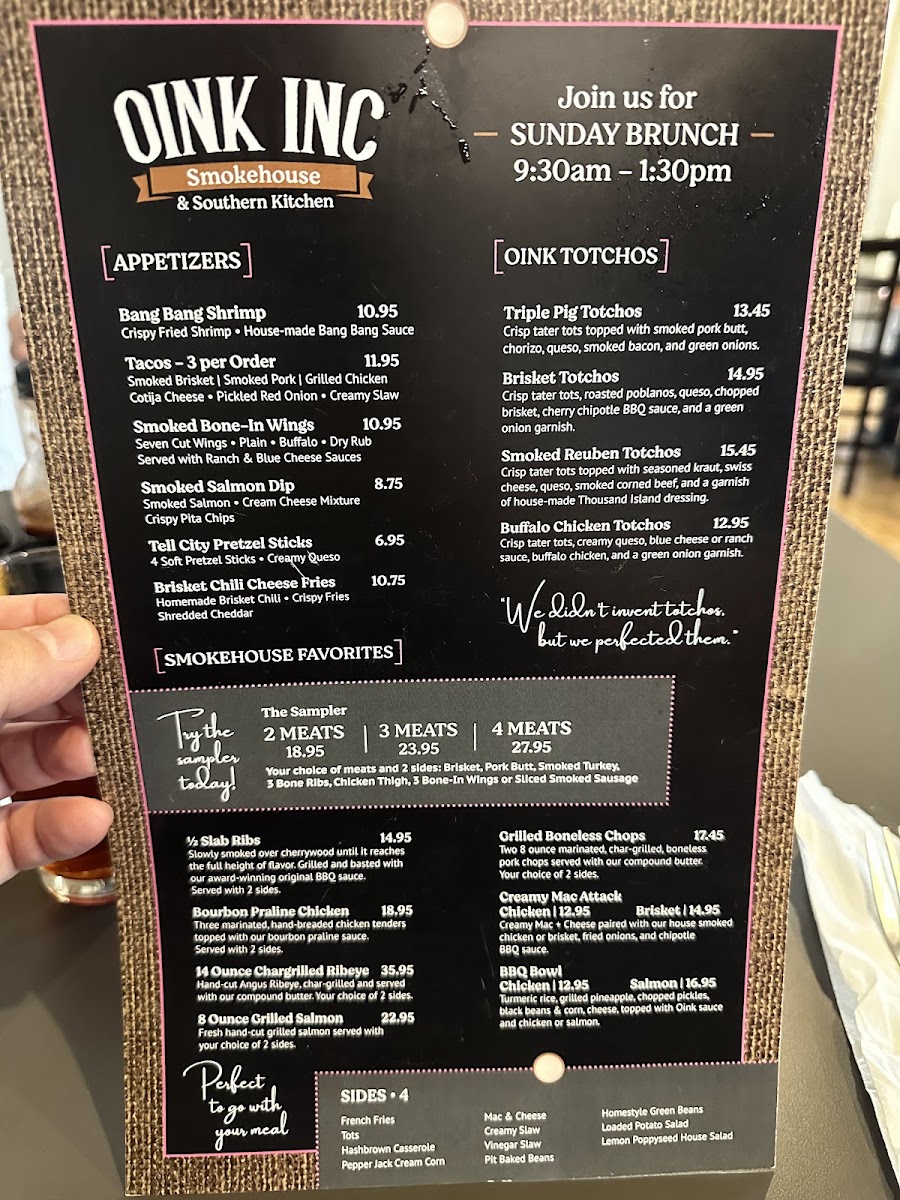 OINK INC
Smokehouse
& Southern Kitchen
Join us for
SUNDAY BRUNCH
9:30am – 1:30pm
[APPETIZERS]
Bang Bang Shrimp 10.95
Crispy Fried Shrimp • House-made Bang Bang Sauce
Tacos – 3 per Order 11.95
Smoked Brisket | Smoked Pork | Grilled Chicken
Cotija Cheese • Pickled Red Onion • Creamy Slaw
Smoked Bone-In Wings 10.95
Seven Cut Wings • Plain • Buffalo • Dry Rub
Served with Ranch & Blue Cheese Sauces
Smoked Salmon Dip 8.75
Smoked Salmon • Cream Cheese Mixture
Crispy Pita Chips
Tell City Pretzel Sticks 6.95
4 Soft Pretzel Sticks • Creamy Queso
Brisket Chili Cheese Fries 10.75
Homemade Brisket Chili • Crispy Fries
Shredded Cheddar
[OINK TOTCHOS]
Triple Pig Totchos 13.45
Crisp tater tots topped with smoked pork butt,
chorizo, queso, smoked bacon, and green onions.
Brisket Totchos 14.95
Crisp tater tots, roasted poblanos, queso, chopped
brisket, cherry chipotle BBQ sauce, and a green
onion garnish.
Smoked Reuben Totchos 15.45
Crisp tater tots topped with seasoned kraut, swiss
cheese, queso, smoked corned beef, and a garnish
of house-made Thousand Island dressing.
Buffalo Chicken Totchos 12.95
Crisp tater tots, creamy queso, blue cheese or ranch
sauce, buffalo chicken, and a green onion garnish.
"We didn't invent totchos.
but we perfected them."
[SMOKEHOUSE FAVORITES]
Try the
sampler
today!
The Sampler
2 MEATS | 3 MEATS | 4 MEATS
18.95 23.95 27.95
Your choice of meats and 2 sides: Brisket, Pork Butt, Smoked Turkey,
3 Bone Ribs, Chicken Thigh, 3 Bone-In Wings or Sliced Smoked Sausage
½ Slab Ribs 14.95
Slowly smoked over cherrywood until it reaches
the full height of flavor. Grilled and basted with
our award-winning original BBQ sauce.
Served with 2 sides.
Bourbon Praline Chicken 18.95
Three marinated, hand-breaded chicken tenders
topped with our bourbon praline sauce.
Served with 2 sides.
14 Ounce Chargrilled Ribeye 35.95
Hand-cut Angus Ribeye, char-grilled and served
with our compound butter. Your choice of 2 sides.
8 Ounce Grilled Salmon 22.95
Fresh hand-cut grilled salmon served with
your choice of 2 sides.
Grilled Boneless Chops 17.45
Two 8 ounce marinated, char-grilled, boneless
pork chops served with our compound butter.
Your choice of 2 sides.
Creamy Mac Attack
Chicken | 12.95 Brisket | 14.95
Creamy Mac + Cheese paired with our house smoked
chicken or brisket, fried onions, and chipotle
BBQ sauce.
BBQ Bowl
Chicken | 12.95 Salmon | 16.95
Turmeric rice, grilled pineapple, chopped pickles,
black beans & corn, cheese, topped with Oink sauce
and chicken or salmon.
Perfect
to go with
your meal
SIDES • 4
French Fries
Tots
Hashbrown Casserole
Pepper Jack Cream Corn
Mac & Cheese
Creamy Slaw
Vinegar Slaw
Pit Baked Beans
Homestyle Green Beans
Loaded Potato Salad
Lemon Poppyseed House Salad